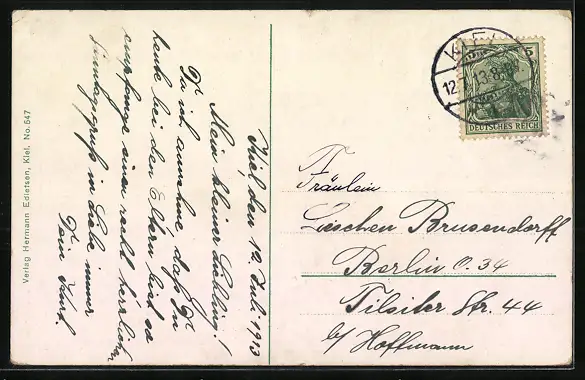 Kiel, den 12. Juli 1913
Mein kleiner Liebling!
Da ich annehme, daß Du
heute bei den Eltern bist, so
empfange einen recht herzlichen
Sonntagsgruß in Liebe immer
Dein Kurt.
Verlag Hermann Edlefsen, Kiel, No. 547
KIEL
12.7.13.8-9
5
DEUTSCHES REICH
Fräulein
Lieschen Brusendorff
Berlin O. 34
Tilsiter Str. 44
b/ Hoffmann